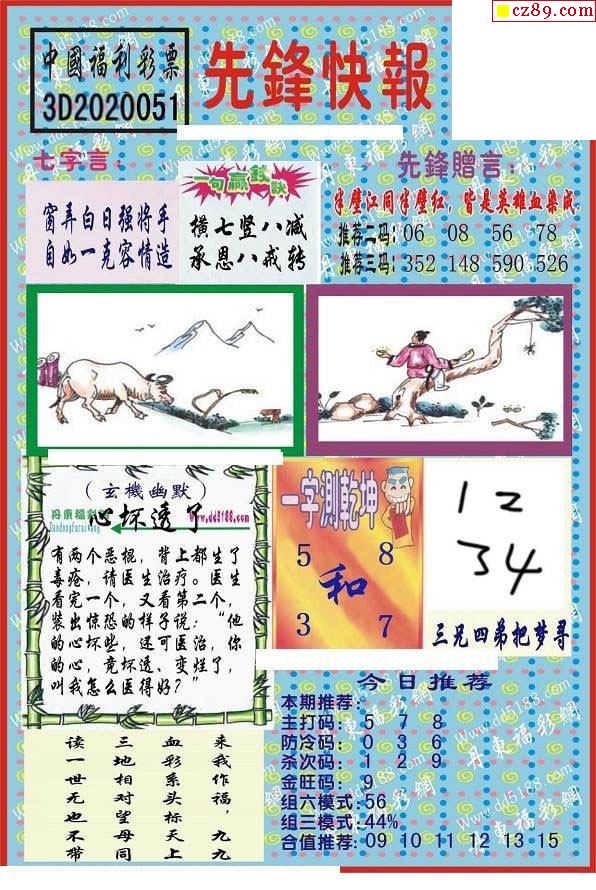 cz89.com
中國福利彩票
3D2020051
先鋒快報
七字言:
窗弄白日强将手
自如一克容情造
一句赢鈛訣
横七竖八减
承恩八戒转
先鋒贈言:
半壁江同半壁红，皆是英雄血染成。
推荐二码: 06 08 56 78
推荐三码: 352 148 590 526
(玄機幽默)
丹東福彩
心坏透了
www.dd5188.com
有两个恶棍，背上都生了
毒疮，请医生治疗。医生
看完一个，又看第二个，
装出惊恐的样子说：“他
的心坏些，还可医治，你
的心，竟坏透、变烂了，
叫我怎么医得好？”
一字測乾坤
5 8
和
3 7
12
34
三兄四弟把梦寻
来我作福，九九
血彩系头标天上
三地相对望母同
读一世无也不带
今日推荐
本期推荐:
主打码: 5 7 8
防冷码: 0 3 6
杀次码: 1 2 9
金旺码: 9
组六模式:56%
组三模式:44%
合值推荐: 09 10 11 12 13 15
Www.dd5188.com
丹東福彩網